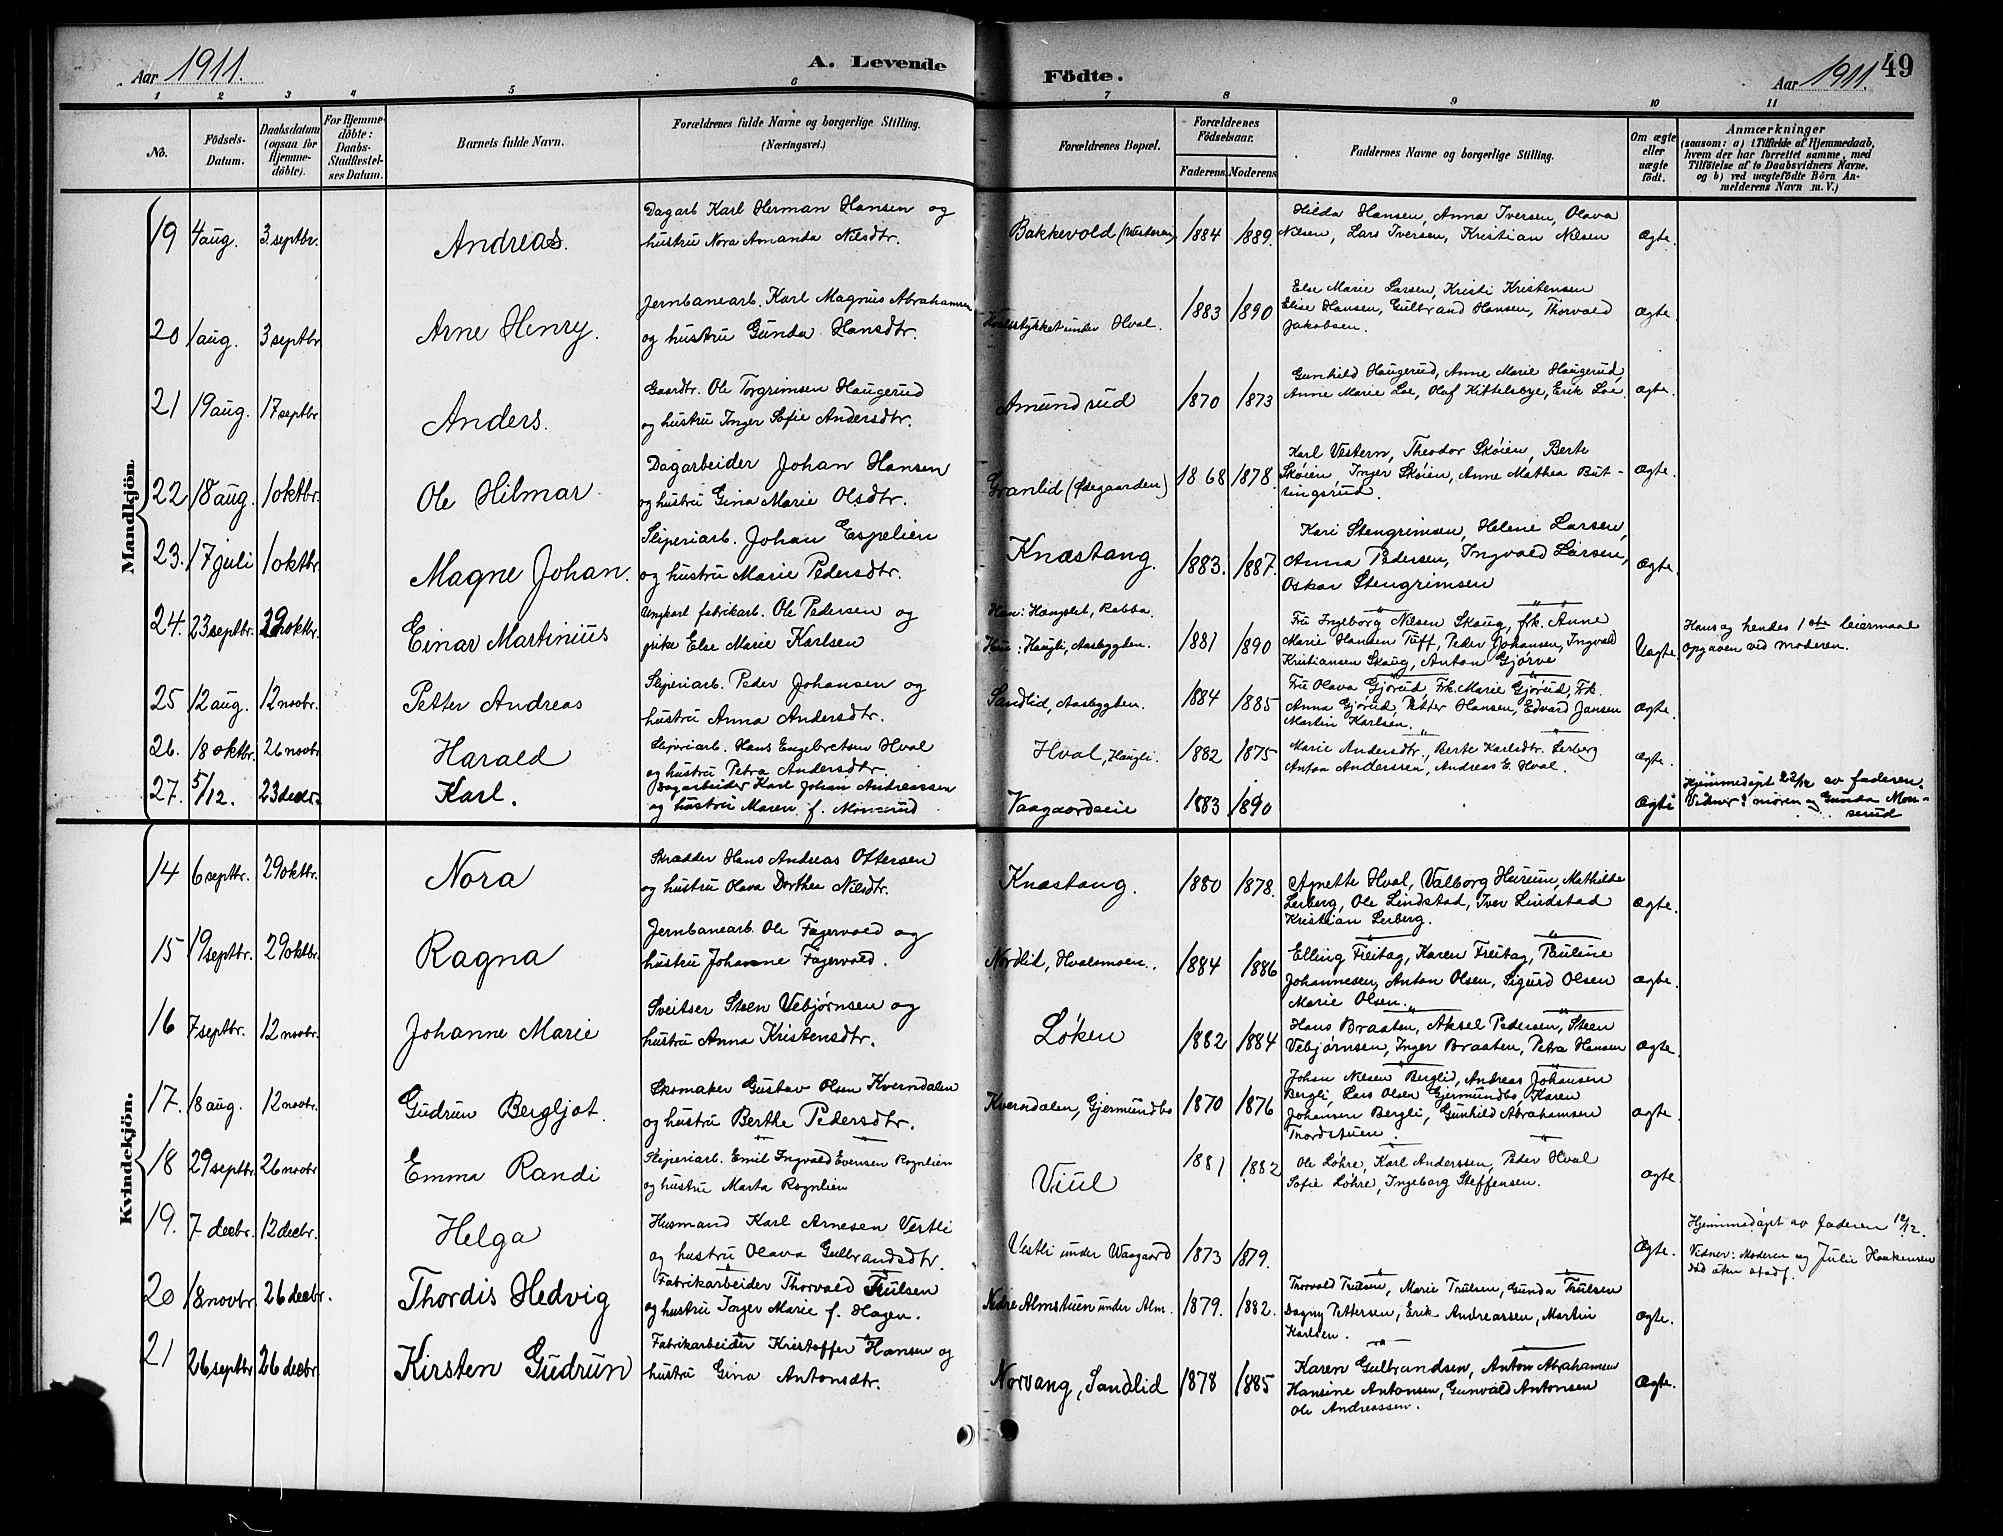 Aar 1911.
A. Levende
Födte.
Aar 1911.
49
1 2 3 4 5 6 7 8 9 10 11
No.
Födsels-
Datum.
Daabsdatum
(ogsaa for
Hjemme-
döbte).
For Hjemme-
döbte:
Daabs-
Stadfæstel-
ses Datum.
Barnets fulde Navn.
Forældrenes fulde Navne og borgerlige Stilling.
(Næringsvei.)
Forældrenes Bopæl.
Forældrenes
Födselsaar.
Faderens. Moderens.
Faddernes Navne og borgerlige Stilling.
Om ægte
eller
uægte
födt.
Anmærkninger
(saasom: a) i Tilfælde af Hjemmedaab,
hvem der har forrettet samme, med
Tilföielse af to Daabsvidners Navne.
og b) ved uægtefödte Börn An-
melderens Navn m. V.)
Mandkjön.
19 4 aug. 3 septbr. Andreas.
Dagarb Karl Herman Hansen og
hustru Nora Amanda Nilsdtr.
Bakkevold 1884 1889.
Hilda Hansen, Anna Iversen, Olava
Nilsen, Lars Iversen, Kristian Nilsen
Ægte.
20 1 aug. 3 septbr Arne Henry.
Jernbanearb. Karl Magnus Abrahamsen
og hustru Gunda Hansdtr.
under Hval. 1883 1890
Else Marie Larsen, Kristi Kristensen
Elise Hansen, Gulbrand Hansen, Thorvald
Jakobsen.
Ægte.
21 19 aug. 17 septbr Anders.
Gaardtr. Ole Torgrimsen Haugerud
og hustru Inger Sofie Andersdtr.
Amundrud 1870 1873
Gunhild Haugerud, Anne Marie Haugerud,
Anne Marie Loe, Olaf Kittelsbye, Erik Loe
Ægte.
22 18 aug. 1 oktbr. Ole Hilmar
Dagarbeider Johan Hansen
og hustru Gina Marie Olsdtr.
Granlid (Ødegaarden) 1868 1878.
Karl Vestern, Theodor Skøien, Berte
Skøien, Inger Skøien, Anne Mathea But-
tingsrud.
Ægte.
23. 17 juli 1 oktbr Magne Johan.
Sliperiarb. Johan Espelien
og hustru Marie Pedersdtr.
Knæstang. 1883. 1887.
Kari Stengrimsen, Helene Larsen,
Anna Pedersen, Ingvald Larsen,
Oskar Stengrimsen
Ægte.
24. 23 septbr. 29 oktbr. Einar Martinius
Ungkarl fabrikarb. Ole Pedersen og
pike Else Marie Karlsen
Han: Hængslet, Rabba.
Hun: Haugli, Aasbygden. 1881 1890
Fru Ingeborg Nilsen Skaug, frk. Anne
Marie Hansen Tuff, Peder Johansen, Ingvald
Kristiansen Skaug, Anton Gjørve
Uægte.
Hans og hendes 1ste leiermaal
opgaven ved moderen.
25 12 aug. 12 novbr. Petter Andreas
Sliperiarb. Peder Johansen og
hustru Anna Andersdtr.
Sandlid, Aasbygden. 1884 1885
Fru Olava Gjørud, Frk. Marie Gjørud, Frk.
Anna Gjørud, Petter Hansen, Edvard Jansen
Martin Karlsen.
Ægte.
26. 18 oktbr. 26 novbr. Harald
Sliperiarb. Hans Engebretsen Hval
og hustru Petra Andersdtr.
Hval, Haugli. 1882 1875
Marie Andersdtr., Berte Karlsdtr. Lerberg
Anton Anderssen, Andreas E. Hval.
Ægte.
27. 5/12. 23 decbr. Karl.
Dagarbeider Karl Johan Andreassen
og hustru Maren f. Monserud
Vaagaardseie 1883 1890
Ægte
Hjemmedøpt 22/12 av faderen.
Vidner: moren og Gunda Mon-
serud
Kvindekjön.
14 6 septbr. 29 oktbr. Nora
Skrædder Hans Andreas Ottersen
og hustru Olava Dorthea Nilsdtr.
Knæstang. 1880 1878.
Agnette Hval, Valborg Hurum, Mathilde
Lerberg, Ole Lindstad, Iver Lindstad
Kristian Lerberg.
Ægte.
15 19 septbr. 29 oktbr. Ragna
Jernbanearb. Ole Fagervold og
hustru Johanne Fagervold.
Nordlid, Hvalsmoen. 1884 1886
Elling Freitag, Karen Freitag, Pauline
Johannesen, Anton Olsen, Sigurd Olsen
Marie Olsen.
Ægte.
16 7 septbr. 12 novbr. Johanne Marie
Sveitser Steen Vebjørnsen og
hustru Anna Kristensdtr.
Løken 1882 1884
Hans Braaten, Aksel Pedersen, Steen
Vebjørnsen, Inger Braaten, Petra Hansen
Ægte.
17. 18 aug. 12 novbr. Gudrun Bergljot.
Skomaker Gustav Olsen Kverndalen
og hustru Berthe Pedersdtr.
Kverndalen, Gjermundbo 1870 1876
Johan Nilsen Berglid, Andreas Johansen
Bergli, Lars Olsen Gjermundbo, Karen
Johansen Bergli, Gunhild Abrahamsen
Thordstuen.
Ægte.
18 29 septbr. 26 novbr Emma Randi
Sliperiarb. Emil Ingvald Evensen Rognlien
og hustru Marta Rognlien
Viul 1881 1882
Ole Løhre, Karl Anderssen, Peder Hval
Sofie Løhre, Ingeborg Steffensen.
Ægte.
19. 7 decbr. 12 decbr. Helga
Husmand Karl Arnesen Vestli
og hustru Olava Gulbrandsdtr.
Vestli under Waagaard 1873 1879.
Ægte.
Hjemmedøpt av faderen 12/12.
Vidner: Moderen og Julie Haakensen
død uten stadf.
20 18 novbr. 26 decbr. Thordis Hedvig
Fabrikarbeider Thorvald Trulsen
og hustru Inger Marie f. Hagen.
Nedre Almstuen under Alm. 1879. 1882.
Thorvald Trulsen, Marie Trulsen, Gunda Trulsen
Dagny Pettersen, Erik Andreassen, Martin
Karlsen.
Ægte.
21 26 septbr 26 decbr Kirsten Gudrun
Fabrikarbeider Kristoffer Hansen og
hustru Gina Antonsdtr.
Norvang, Sandlid 1878 1885
Karen Gulbrandsen, Anton Abrahamsen
Hansine Antonsen, Gunvald Antonsen
Ole Andreassen.
Ægte.